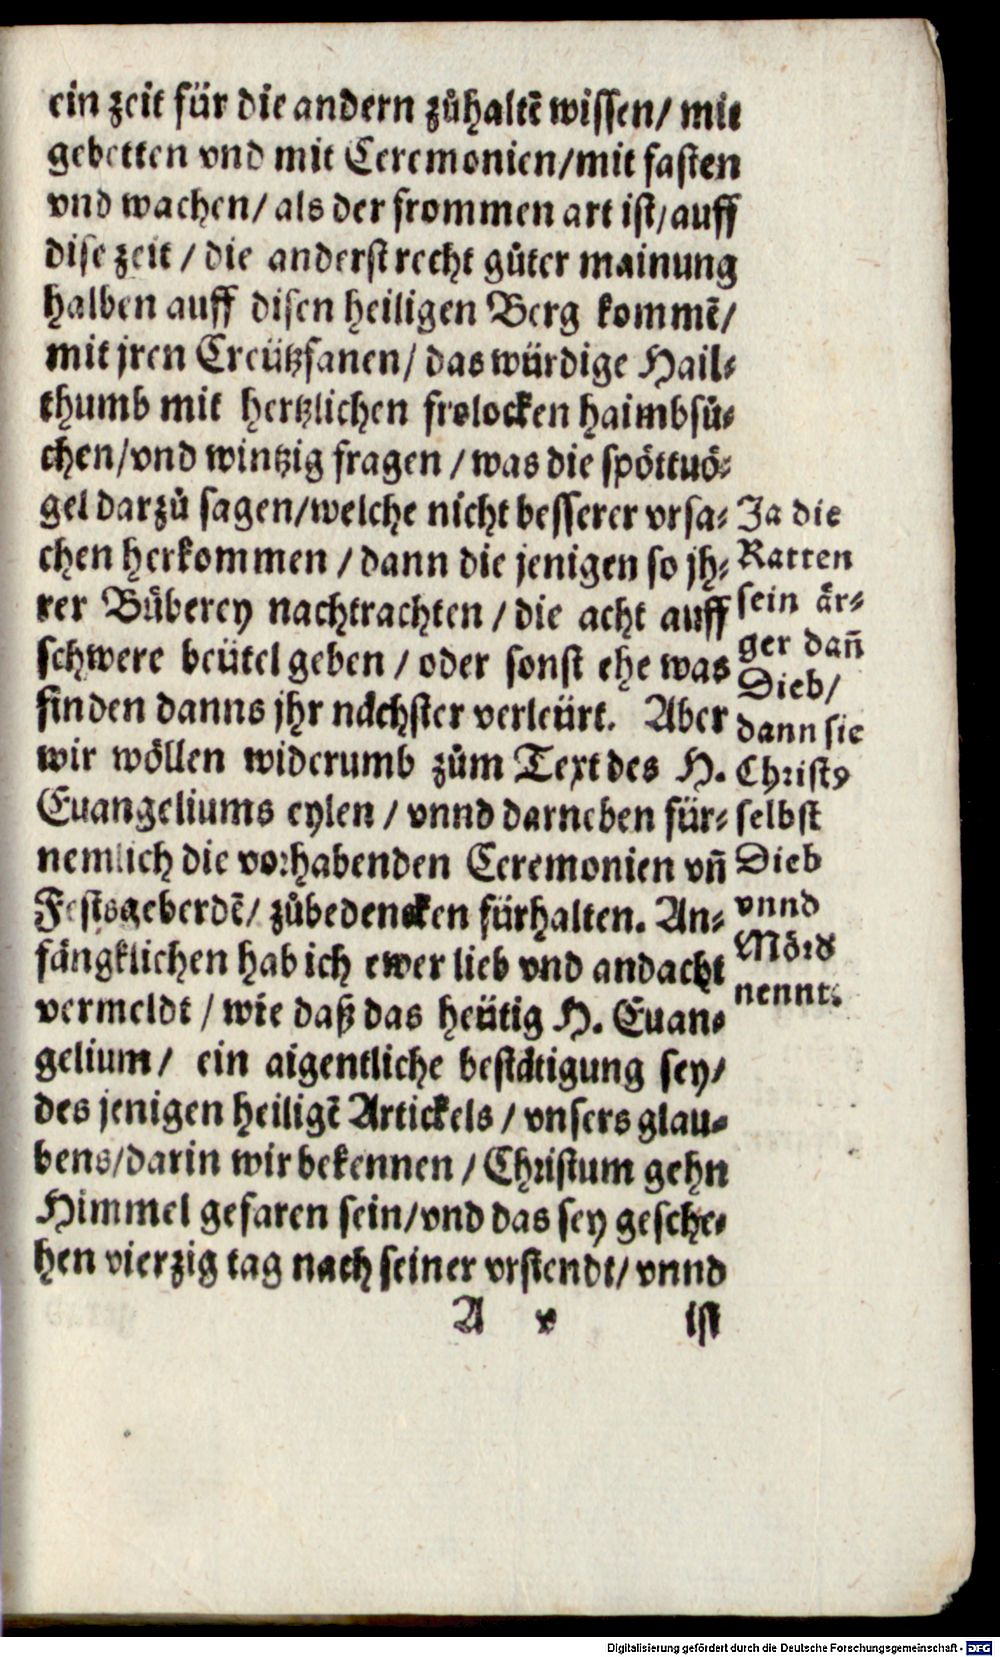 ein zeit für die andern zůhaltẽ wissen/ mit
gebetten vnd mit Ceremonien/mit fasten
vnd wachen/ als der frommen art ist/auff
dise zeit / die anderst recht gůter mainung
halben auff disen heiligen Berg kommẽ/
mit jren Creützfanen/ das würdige Hail⸗
thumb mit hertzlichen frolocken haimbsů⸗
chen/vnd wintzig fragen / was die spöttuö⸗
gel darzů sagen/welche nicht besserer vrsa⸗
chen herkommen / dann die jenigen so jh⸗
rer Bůberey nachtrachten / die acht auff
schwere beütel geben / oder sonst ehe was
finden danns jhr nächster verleürt. Aber
wir wöllen widerumb zům Text des H.
Euangeliums eylen / vnnd darneben für⸗
nemlich die vorhabenden Ceremonien vñ
Festsgeberdẽ/ zůbedencken fürhalten. An⸗
fängklichen hab ich ewer lieb vnd andacht
vermeldt / wie daß das heütig H. Euan⸗
gelium/ ein aigentliche bestätigung sey/
des jenigen heiligẽ Artickels / vnsers glau⸗
bens/darin wir bekennen / Christum gehn
Himmel gefaren sein/vnd das sey gesche⸗
hen vierzig tag nach seiner vrstendt/ vnnd
A v ist
Ja die
Ratten
sein är⸗
ger dañ
Dieb/
dann sie
Christꝰ
selbst
Dieb
vnnd
Mörd
nennt.
Digitalisierung gefördert durch die Deutsche Forschungsgemeinschaft - DFG